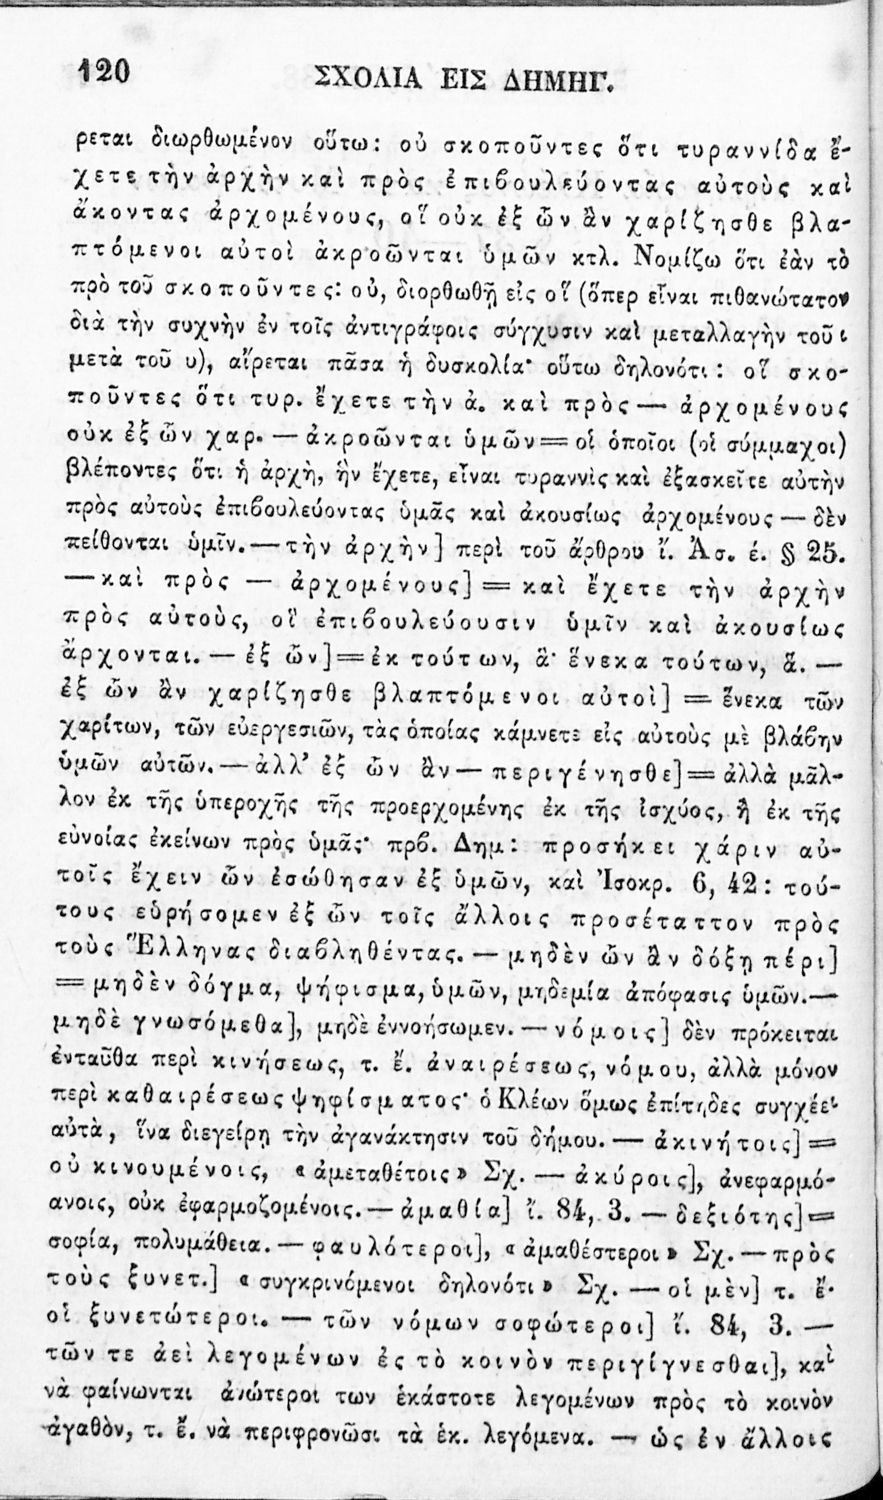 120 ΣΧΟΛΙΑ ΕΙΣ ΔΗΜΗΓ.
ρεται διωρθωμένον οὕτω: οὐ σκοποῦντες ὅτι τυραννίδα ἔ-
χετε τὴν ἀρχὴν καὶ πρὸς ἐπιβουλεύοντας αὐτοὺς καὶ
ἄκοντας ἀρχομένους, οἳ οὐκ ἐξ ὧν ἂν χαρίζησθε βλα-
πτόμενοι αὐτοὶ ἀκροῶνται ὑμῶν κτλ. Νομίζω ὅτι ἐὰν τὸ
πρὸ τοῦ σκοποῦντες: οὐ, διορθωθῇ εἰς οἳ (ὅπερ εἶναι πιθανώτατον
διὰ τὴν συχνὴν ἐν τοῖς ἀντιγράφοις σύγχυσιν καὶ μεταλλαγὴν τοῦ ι
μετὰ τοῦ υ), αἴρεται πᾶσα ἡ δυσκολία· οὕτω δηλονότι: οἳ σκο-
ποῦντες ὅτι τυρ. ἔχετε τὴν ἀ. καὶ πρὸς — ἀρχομένους
οὐκ ἐξ ὧν χαρ. — ἀκροῶνται ὑμῶν = οἱ ὁποῖοι (οἱ σύμμαχοι)
βλέποντες ὅτι ἡ ἀρχὴ, ἣν ἔχετε, εἶναι τυραννὶς καὶ ἐξασκεῖτε αὐτὴν
πρὸς αὐτοὺς ἐπιβουλεύοντας ὑμᾶς καὶ ἀκουσίως ἀρχομένους — δὲν
πείθονται ὑμῖν. — τὴν ἀρχὴν] περὶ τοῦ ἄρθρου ἴ. Ἀσ. έ. § 25.
— καὶ πρὸς — ἀρχομένους] = καὶ ἔχετε τὴν ἀρχὴν
πρὸς αὐτοὺς, οἳ ἐπιβουλεύουσιν ὑμῖν καὶ ἀκουσίως
ἄρχονται. — ἐξ ὧν] = ἐκ τούτων, ἃ· ἕνεκα τούτων, ἅ. —
ἐξ ὧν ἂν χαρίζησθε βλαπτόμενοι αὐτοὶ] = ἕνεκα τῶν
χαρίτων, τῶν εὐεργεσιῶν, τὰς ὁποίας κάμνετε εἰς αὐτοὺς μὲ βλάβην
ὑμῶν αὐτῶν. — ἀλλ’ ἐξ ὧν ἂν — περιγένησθε] = ἀλλὰ μᾶλ-
λον ἐκ τῆς ὑπεροχῆς τῆς προερχομένης ἐκ τῆς ἰσχύος, ἢ ἐκ τῆς
εὐνοίας ἐκείνων πρὸς ὑμᾶς· πρβ. Δημ: προσήκει χάριν αὐ-
τοῖς ἔχειν ὧν ἐσώθησαν ἐξ ὑμῶν, καὶ Ἰσοκρ. 6, 42: τού-
τους εὑρήσομεν ἐξ ὧν τοῖς ἄλλοις προσέταττον πρὸς
τοὺς Ἕλληνας διαβληθέντας. — μηδὲν ὧν ἂν δόξῃ πέρι]
= μηδὲν δόγμα, ψήφισμα, ὑμῶν, μηδεμία ἀπόφασις ὑμῶν. —
μηδὲ γνωσόμεθα], μηδὲ ἐννοήσωμεν. — νόμοις] δὲν πρόκειται
ἐνταῦθα περὶ κινήσεως, τ. ἔ. ἀναιρέσεως, νόμου, ἀλλὰ μόνον
περὶ καθαιρέσεως ψηφίσματος· ὁ Κλέων ὅμως ἐπίτηδες συγχέει
αὐτὰ, ἵνα διεγείρῃ τὴν ἀγανάκτησιν τοῦ δήμου. — ἀκινήτοις] =
οὐ κινουμένοις, « ἀμεταθέτοις » Σχ. — ἀκύροις], ἀνεφαρμό-
ανοις, οὐκ ἐφαρμοζομένοις. — ἀμαθία] ἴ. 84, 3. — δεξιότης] =
σοφία, πολυμάθεια. — φαυλότεροι], « ἀμαθέστεροι » Σχ. — πρὸς
τοὺς ξυνετ.] « συγκρινόμενοι δηλονότι » Σχ. — οἱ μὲν] τ. ἔ·
οἱ ξυνετώτεροι. — τῶν νόμων σοφώτεροι] ἴ. 84, 3. —
τῶν τε ἀεὶ λεγομένων ἐς τὸ κοινὸν περιγίγνεσθαι], καὶ
νὰ φαίνωνται ἀνώτεροι των ἑκάστοτε λεγομένων πρὸς τὸ κοινὸν
ἀγαθὸν, τ. ἔ. νὰ περιφρονῶσι τὰ ἑκ. λεγόμενα. — ὡς ἐν ἄλλοις